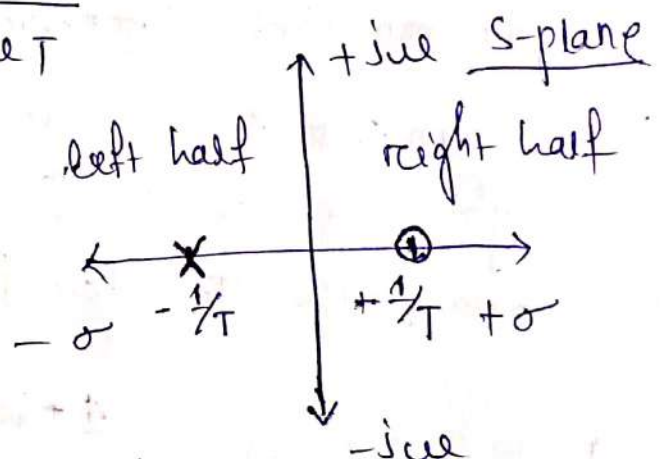 T
+jω S-plane
left half right half
- σ - 1/T + 1/T + σ
-jω